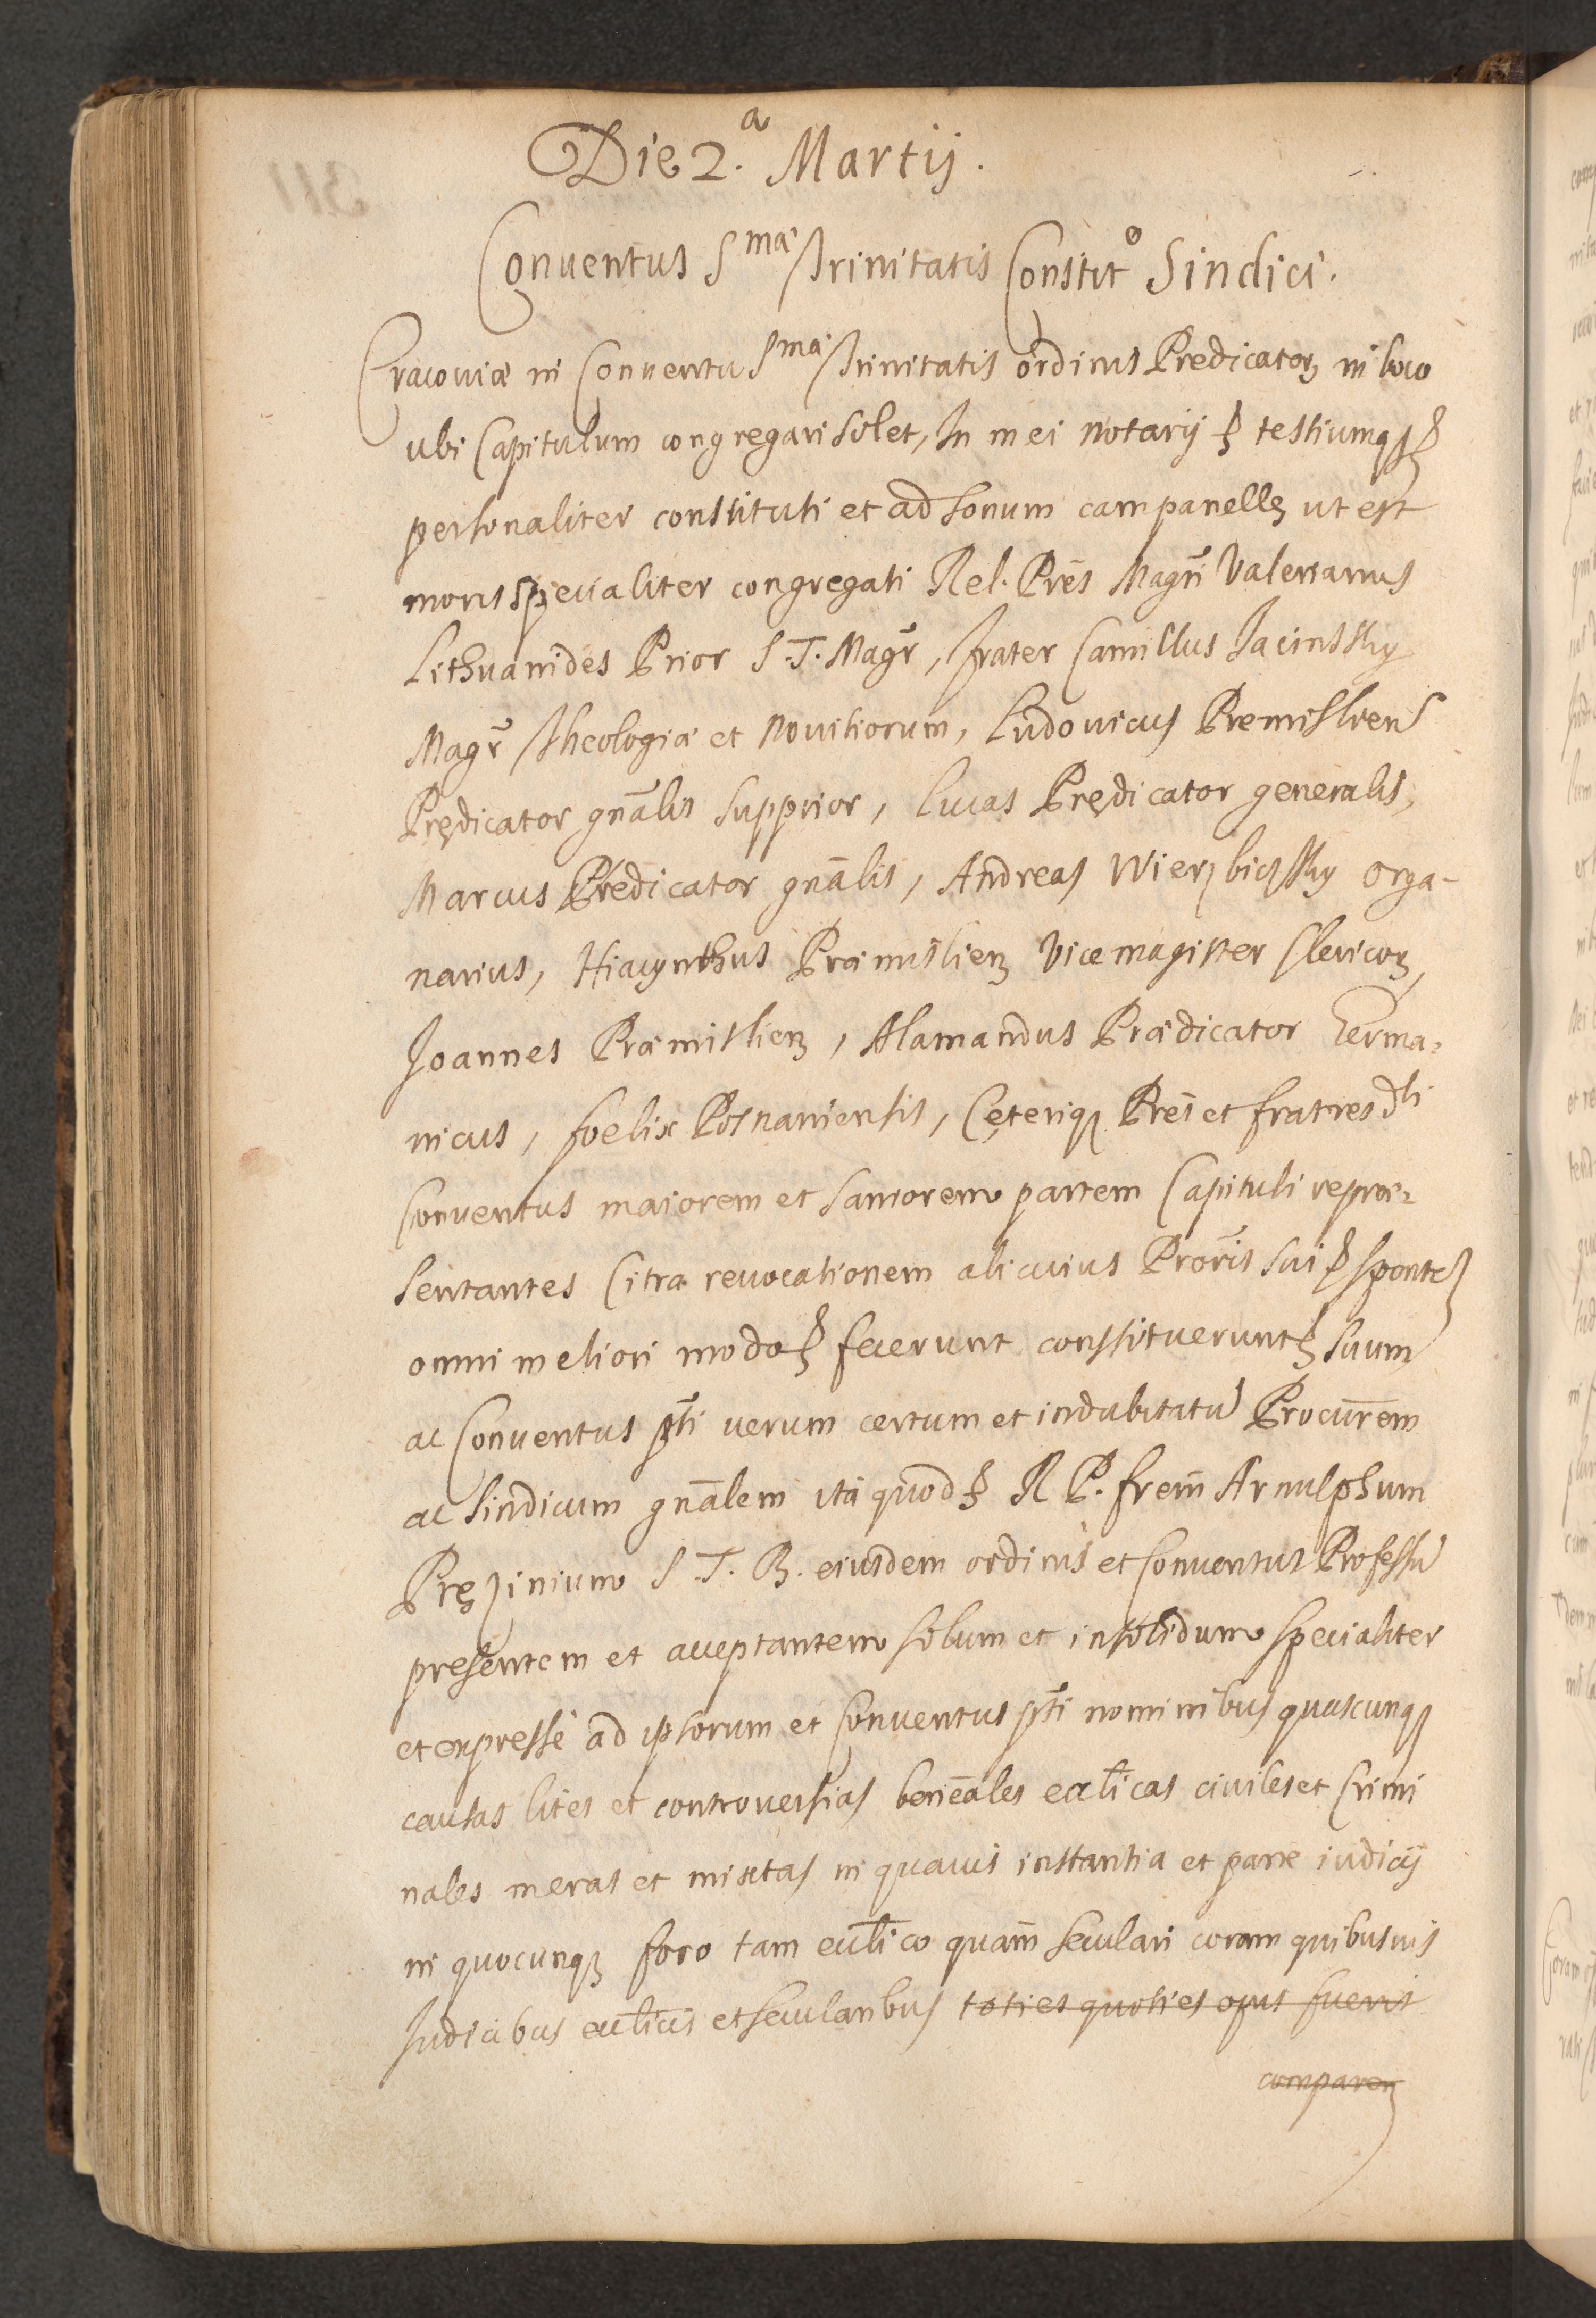 Die 2.a Martij.
Conuentus Smæ Trinitatis Constito Sindici.
Cracouiæ in Conuentu Smæ Trinitatis ordinis Predicatorꝫ in loco
ubi Capitulum congregari solet, In mei Notarij ꝫ testiumqꝫ
personaliter constituti et ad sonum campanellę ut est
moris specialiter congregati Rel. Prēs Magrī Valerianus
Lithuanides Prior S. T. Magr̄, frater Camillus Jacinsky
Magr̄ Theologiæ et Novitiorum, Ludovicus Premislien
Prędicator gnālis supprior, Lucas Prędicator generalis,
Marcus Prędicator gnālis, Andreas Wierzbicsky Orga-
narius, Hiacynthus Præmislienꝫ Vicemagister Clericorꝫ,
Joannes Præmislienꝫ, Alamandus Prædicator Germa-
nicus, foelix Posnaniensis, Cęteriqꝫ Prēs et fratres dti
Conuentus maiorem et saniorem partem Capituli repræ-
sentantes Citra reuocationem alicuius Prorīs sui ꝫ sponteꝫ
omni meliori modo ꝫ fecerunt constituerunt ꝫ suum
ac Conuentus pti uerum certum et indubitatū Procurēm
ac sindicum gnālem ita quod ꝫ R P. frem̄ Arnulphum
Pręzinium S. T. B. eiusdem ordinis et Conuentus Professū
presentem et acceptantem solum et insolidum specialiter
et expressè ad ipsorum et Conuentus pti nominibus quascunqꝫ
causas lites et controuersias beneāles ecclīcas ciuiles et Crimi
nales meras et mixtas in quauis instantia et parte iudicij
in quocunqꝫ foro tam ecclīco quam̄ seculari coram quibusuis
Iudicibus ecclīcis et secularibus toties quoties opus fuerit
comparenꝫ